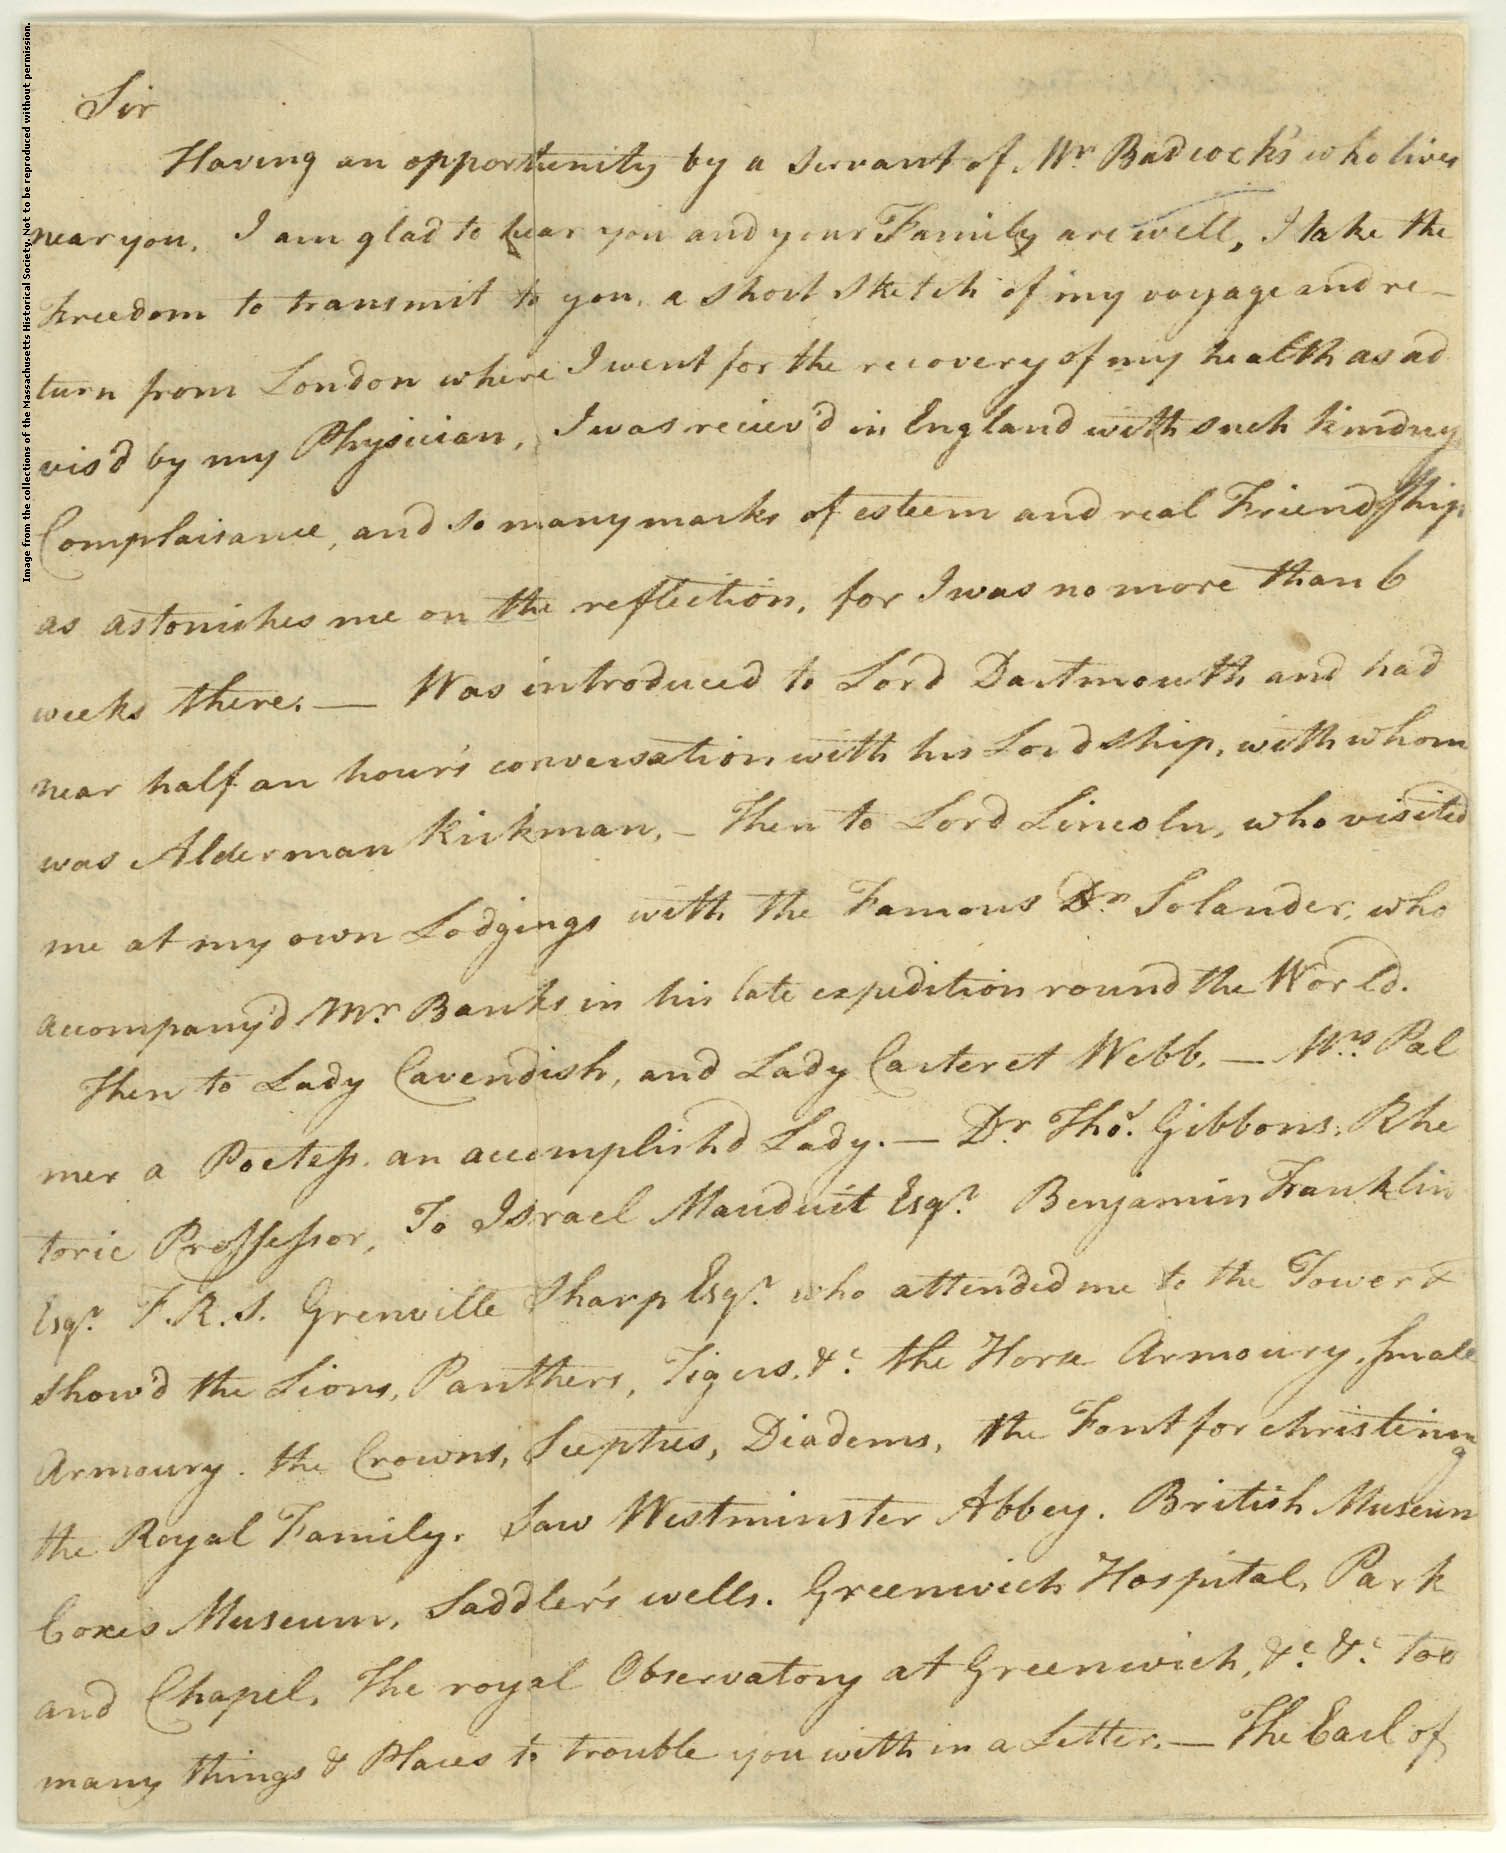 Sir
Having an opportunity by a servant of Mr Badcock's who lives
near you, I am glad to hear you and your Family are well, I take the
Freedom to transmit to you, a short sketch of my voyage and re-
turn from London where I went for the recovery of my health as ad
vis'd by my Physician, I was reciev'd in England with such kindness
Complaisance, and so many marks of esteem and real Friendship
as astonishes me on the reflection, for I was no more than 6
weeks there. — Was introduced to Lord Dartmouth and had
near half an hour's conversation with his Lordship, with whom
was Alderman Kirkman, — Then to Lord Lincoln, who visited
me at my own Lodgings with the Famous Dr Solander, who
accompany'd Mr Banks in his late expedition round the World.
Then to Lady Cavendish, and Lady Carteret Webb, — Mrs Pal
mer a Poetess, an accomplish'd Lady. — Dr Thos. Gibbons, Rhe
toric Proffessor, To Israel Mauduit Esqr. Benjamin Franklin
Esqr. F.R.S. Grenville Sharp Esqr. who attended me to the Tower &
show'd the Lions, Panthers, Tigers, &c. the Horse Armoury, small
Armoury, the Crowns, Sceptres, Diadems, the Font for christening
the Royal Family. Saw Westminster Abbey, British Museum
Coxes Museum, Saddler's wells, Greenwich Hospital, Park
and Chapel, The royal Observatory at Greenwich, &c. &c. too
many things & Places to trouble you with in a Letter. — The Earl of
Image from the collections of the Massachusetts Historical Society. Not to be reproduced without permission.